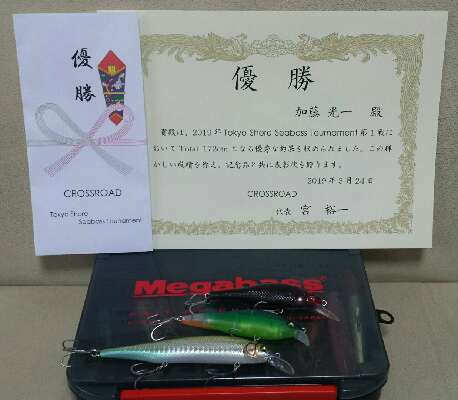 優勝
CROSSROAD
Tokyo Shore
Seabass Tournament
優 勝
加藤 光一 殿
貴殿は、2019年Tokyo Shore Seabass Tournament第1戦に
おいてTotal 172cmになる優秀な釣果を収められました。この輝
かしい成績を称え、記念品と共に表彰状を贈ります。
2019年3月24日
CROSSROAD
代表 宮 裕一
Megabass